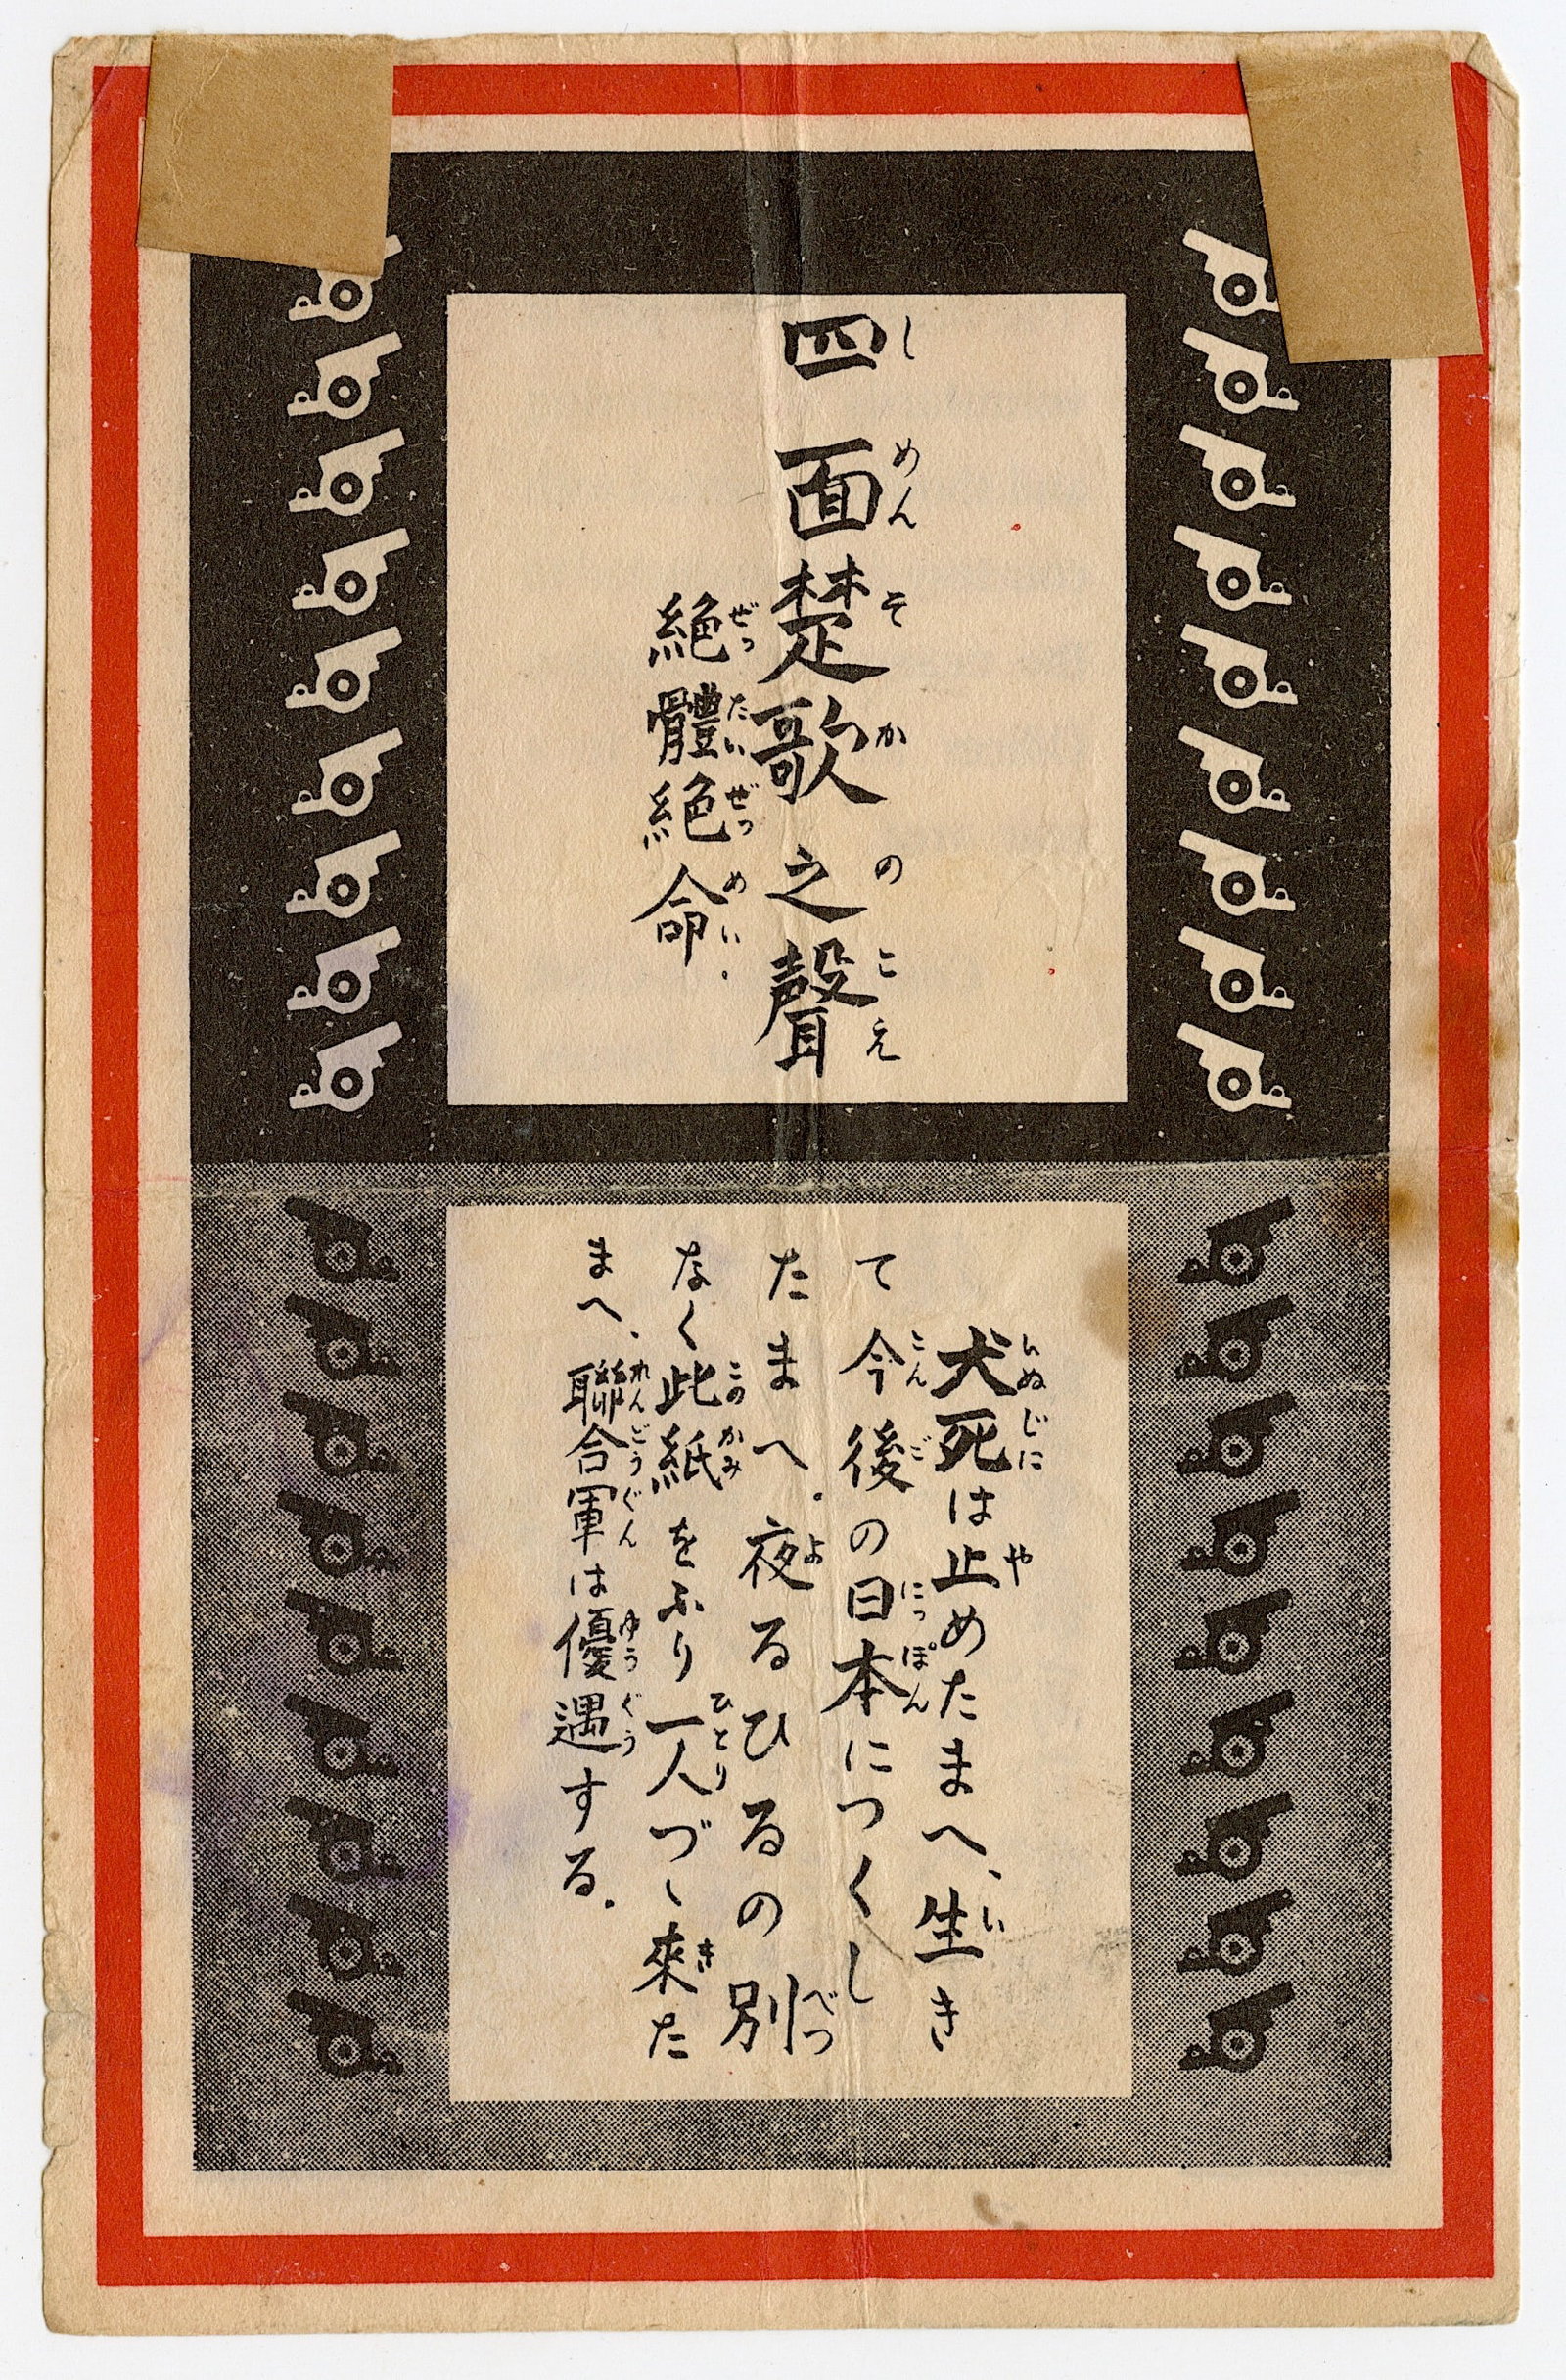 四面楚歌之聲
絶體絶命.
犬死は止めたまへ、生き
て今後の日本につくし
たまへ.夜るひるの別
なく此紙をふり一人づゝ來た
まへ、聯合軍は優遇する.